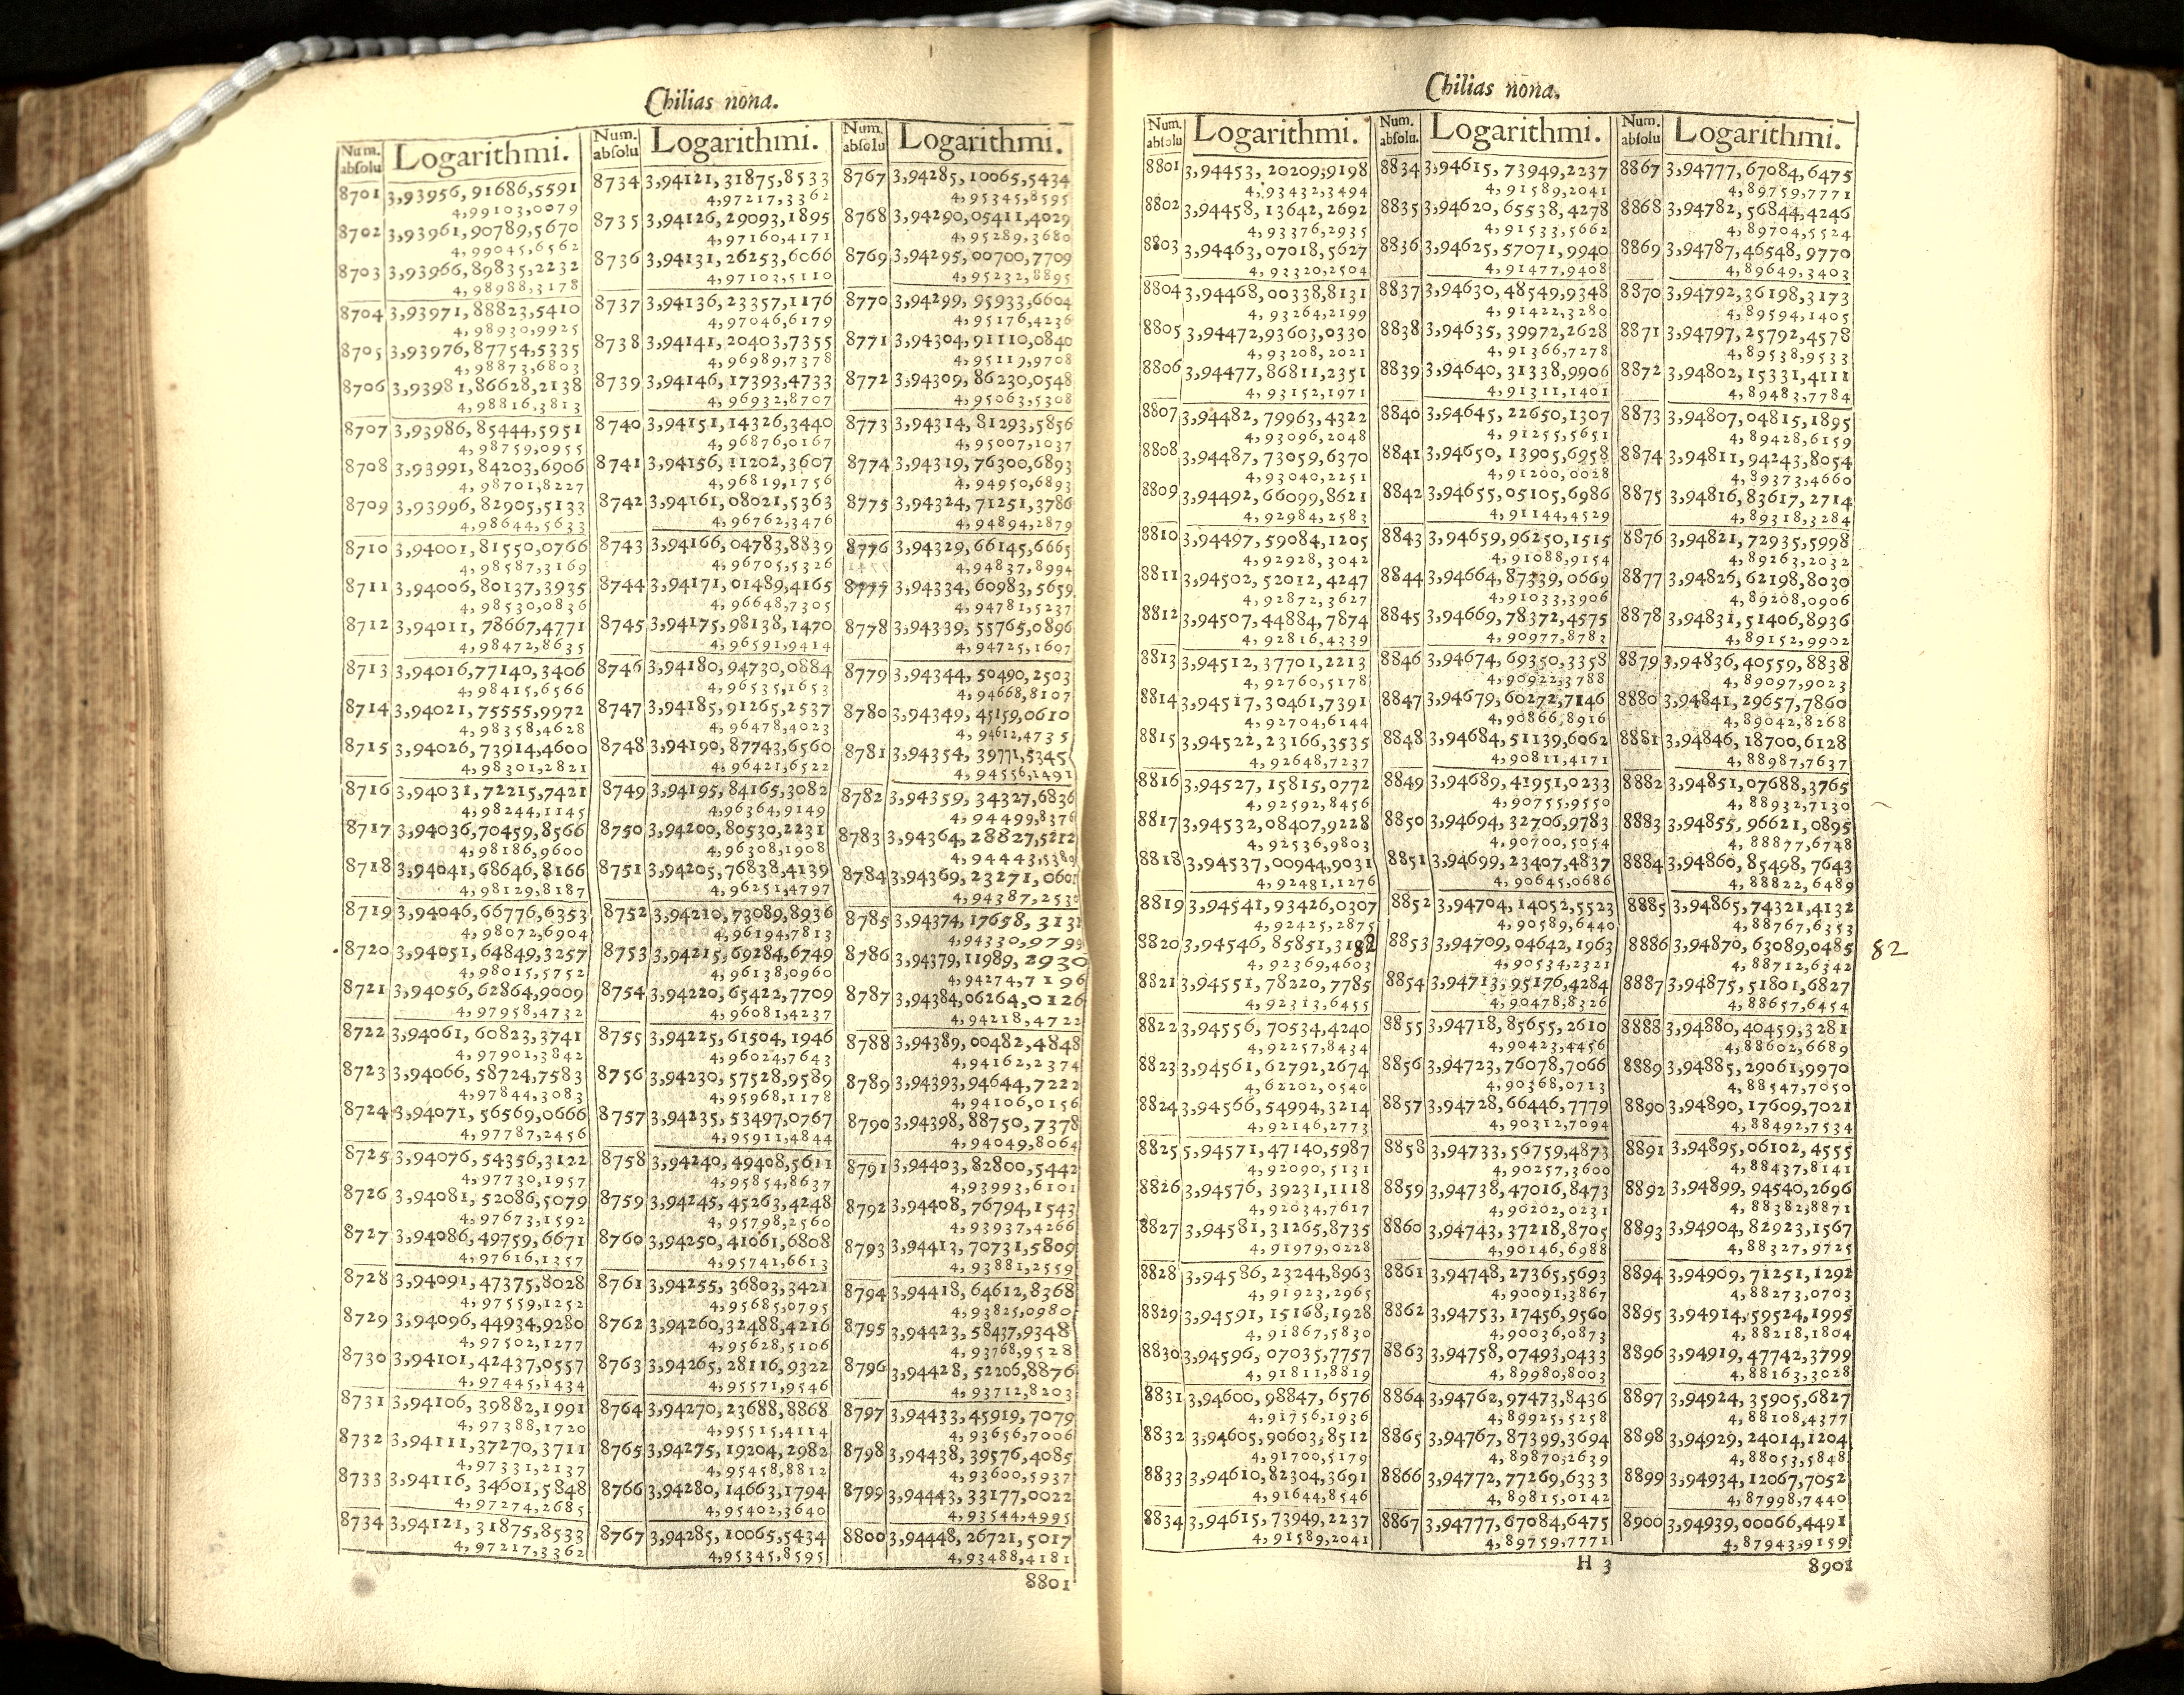 Chilias nona.
Num. absolu Logarithmi.
8701 3,93956,91686,5591
4,99103,0079
8702 3,93961,90789,5670
4,99045,6562
8703 3,93966,89835,2232
4,98988,3178
8704 3,93971,88823,5410
4,98930,9925
8705 3,93976,87754,5335
4,98873,6803
8706 3,93981,86628,2138
4,98816,3813
8707 3,93986,85444,5951
4,98759,0955
8708 3,93991,84203,6906
4,98701,8227
8709 3,93996,82905,5133
4,98644,5633
8710 3,94001,81550,0766
4,98587,3169
8711 3,94006,80137,3935
4,98530,0836
8712 3,94011,78667,4771
4,98472,8635
8713 3,94016,77140,3406
4,98415,6566
8714 3,94021,75555,9972
4,98358,4628
8715 3,94026,73914,4600
4,98301,2821
8716 3,94031,72215,7421
4,98244,1145
8717 3,94036,70459,8566
4,98186,9600
8718 3,94041,68646,8166
4,98129,8187
8719 3,94046,66776,6353
4,98072,6904
8720 3,94051,64849,3257
4,98015,5752
8721 3,94056,62864,9009
4,97958,4732
8722 3,94061,60823,3741
4,97901,3842
8723 3,94066,58724,7583
4,97844,3083
8724 3,94071,56569,0666
4,97787,2456
8725 3,94076,54356,3122
4,97730,1957
8726 3,94081,52086,5079
4,97673,1592
8727 3,94086,49759,6671
4,97616,1357
8728 3,94091,47375,8028
4,97559,1252
8729 3,94096,44934,9280
4,97502,1277
8730 3,94101,42437,0557
4,97445,1434
8731 3,94106,39882,1991
4,97388,1720
8732 3,94111,37270,3711
4,97331,2137
8733 3,94116,34601,5848
4,97274,2685
8734 3,94121,31875,8533
4,97217,3362
Num. absolu Logarithmi.
8734 3,94121,31875,8533
4,97217,3362
8735 3,94126,29093,1895
4,97160,4171
8736 3,94131,26253,6066
4,97103,5110
8737 3,94136,23357,1176
4,97046,6179
8738 3,94141,20403,7355
4,96989,7378
8739 3,94146,17393,4733
4,96932,8707
8740 3,94151,14326,3440
4,96876,0167
8741 3,94156,11202,3607
4,96819,1756
8742 3,94161,08021,5363
4,96762,3476
8743 3,94166,04783,8839
4,96705,5326
8744 3,94171,01489,4165
4,96648,7305
8745 3,94175,98138,1470
4,96591,9414
8746 3,94180,94730,0884
4,96535,1653
8747 3,94185,91265,2537
4,96478,4023
8748 3,94190,87743,6560
4,96421,6522
8749 3,94195,84165,3082
4,96364,9149
8750 3,94200,80530,2231
4,96308,1908
8751 3,94205,76838,4139
4,96251,4797
8752 3,94210,73089,8936
4,96194,7813
8753 3,94215,69284,6749
4,96138,0960
8754 3,94220,65422,7709
4,96081,4237
8755 3,94225,61504,1946
4,96024,7643
8756 3,94230,57528,9589
4,95968,1178
8757 3,94235,53497,0767
4,95911,4844
8758 3,94240,49408,5611
4,95854,8637
8759 3,94245,45263,4248
4,95798,2560
8760 3,94250,41061,6808
4,95741,6613
8761 3,94255,36803,3421
4,95685,0795
8762 3,94260,32488,4216
4,95628,5106
8763 3,94265,28116,9322
4,95571,9546
8764 3,94270,23688,8868
4,95515,4114
8765 3,94275,19204,2982
4,95458,8812
8766 3,94280,14663,1794
4,95402,3640
8767 3,94285,10065,5434
4,95345,8595
Num. absolu Logarithmi.
8767 3,94285,10065,5434
4,95345,8595
8768 3,94290,05411,4029
4,95289,3680
8769 3,94295,00700,7709
4,95232,8895
8770 3,94299,95933,6604
4,95176,4236
8771 3,94304,91110,0840
4,95119,9708
8772 3,94309,86230,0548
4,95063,5308
8773 3,94314,81293,5856
4,95007,1037
8774 3,94319,76300,6893
4,94950,6893
8775 3,94324,71251,3786
4,94894,2879
8776 3,94329,66145,6665
4,94837,8994
8777 3,94334,60983,5659
4,94781,5237
8778 3,94339,55765,0896
4,94725,1607
8779 3,94344,50490,2503
4,94668,8107
8780 3,94349,45159,0610
4,94612,4735
8781 3,94354,39771,5345
4,94556,1491
8782 3,94359,34327,6836
4,94499,8376
8783 3,94364,28827,5212
4,94443,5389
8784 3,94369,23271,0601
4,94387,2530
8785 3,94374,17658,3131
4,94330,9799
8786 3,94379,11989,2930
4,94274,7196
8787 3,94384,06264,0126
4,94218,4722
8788 3,94389,00482,4848
4,94162,2374
8789 3,94393,94644,7222
4,94106,0156
8790 3,94398,88750,7378
4,94049,8064
8791 3,94403,82800,5442
4,93993,6101
8792 3,94408,76794,1543
4,93937,4266
8793 3,94413,70731,5809
4,93881,2559
8794 3,94418,64612,8368
4,93825,0980
8795 3,94423,58437,9348
4,93768,9528
8796 3,94428,52206,8876
4,93712,8203
8797 3,94433,45919,7079
4,93656,7006
8798 3,94438,39576,4085
4,93600,5937
8799 3,94443,33177,0022
4,93544,4995
8800 3,94448,26721,5017
4,93488,4181
8801
Chilias nona.
Num. absolu Logarithmi.
8801 3,94453,20209,9198
4,93432,3494
8802 3,94458,13642,2692
4,93376,2935
8803 3,94463,07018,5627
4,93320,2504
8804 3,94468,00338,8131
4,93264,2199
8805 3,94472,93603,0330
4,93208,2021
8806 3,94477,86811,2351
4,93152,1971
8807 3,94482,79963,4322
4,93096,2048
8808 3,94487,73059,6370
4,93040,2251
8809 3,94492,66099,8621
4,92984,2583
8810 3,94497,59084,1205
4,92928,3042
8811 3,94502,52012,4247
4,92872,3627
8812 3,94507,44884,7874
4,92816,4339
8813 3,94512,37701,2213
4,92760,5178
8814 3,94517,30461,7391
4,92704,6144
8815 3,94522,23166,3535
4,92648,7237
8816 3,94527,15815,0772
4,92592,8456
8817 3,94532,08407,9228
4,92536,9803
8818 3,94537,00944,9031
4,92481,1276
8819 3,94541,93426,0307
4,92425,2875
8820 3,94546,85851,3182
4,92369,4603
8821 3,94551,78220,7785
4,92313,6455
8822 3,94556,70534,4240
4,92257,8434
8823 3,94561,62792,2674
4,62202,0540
8824 3,94566,54994,3214
4,92146,2773
8825 5,94571,47140,5987
4,92090,5131
8826 3,94576,39231,1118
4,92034,7617
8827 3,94581,31265,8735
4,91979,0228
8828 3,94586,23244,8963
4,91923,2965
8829 3,94591,15168,1928
4,91867,5830
8830 3,94596,07035,7757
4,91811,8819
8831 3,94600,98847,6576
4,91756,1936
8832 3,94605,90603,8512
4,91700,5179
8833 3,94610,82304,3691
4,91644,8546
8834 3,94615,73949,2237
4,91589,2041
Num. absolu. Logarithmi.
8834 3,94615,73949,2237
4,91589,2041
8835 3,94620,65538,4278
4,91533,5662
8836 3,94625,57071,9940
4,91477,9408
8837 3,94630,48549,9348
4,91422,3280
8838 3,94635,39972,2628
4,91366,7278
8839 3,94640,31338,9906
4,91311,1401
8840 3,94645,22650,1307
4,91255,5651
8841 3,94650,13905,6958
4,91200,0028
8842 3,94655,05105,6986
4,91144,4529
8843 3,94659,96250,1515
4,91088,9154
8844 3,94664,87339,0669
4,91033,3906
8845 3,94669,78372,4575
4,90977,8783
8846 3,94674,69350,3358
4,90922,3788
8847 3,94679,60272,7146
4,90866,8916
8848 3,94684,51139,6062
4,90811,4171
8849 3,94689,41951,0233
4,90755,9550
8850 3,94694,32706,9783
4,90700,5054
8851 3,94699,23407,4837
4,90645,0686
8852 3,94704,14052,5523
4,90589,6440
8853 3,94709,04642,1963
4,90534,2321
8854 3,94713,95176,4284
4,90478,8326
8855 3,94718,85655,2610
4,90423,4456
8856 3,94723,76078,7066
4,90368,0713
8857 3,94728,66446,7779
4,90312,7094
8858 3,94733,56759,4873
4,90257,3600
8859 3,94738,47016,8473
4,90202,0231
8860 3,94743,37218,8705
4,90146,6988
8861 3,94748,27365,5693
4,90091,3867
8862 3,94753,17456,9560
4,90036,0873
8863 3,94758,07493,0433
4,89980,8003
8864 3,94762,97473,8436
4,89925,5258
8865 3,94767,87399,3694
4,89870,2639
8866 3,94772,77269,6333
4,89815,0142
8867 3,94777,67084,6475
4,89759,7771
H 3
Num. absolu Logarithmi.
8867 3,94777,67084,6475
4,89759,7771
8868 3,94782,56844,4246
4,89704,5524
8869 3,94787,46548,9770
4,89649,3403
8870 3,94792,36198,3173
4,89594,1405
8871 3,94797,25792,4578
4,89538,9533
8872 3,94802,15331,4111
4,89483,7784
8873 3,94807,04815,1895
4,89428,6159
8874 3,94811,94243,8054
4,89373,4660
8875 3,94816,83617,2714
4,89318,3284
8876 3,94821,72935,5998
4,89263,2032
8877 3,94826,62198,8030
4,89208,0906
8878 3,94831,51406,8936
4,89152,9902
8879 3,94836,40559,8838
4,89097,9023
8880 3,94841,29657,7860
4,89042,8268
8881 3,94846,18700,6128
4,88987,7637
8882 3,94851,07688,3765
4,88932,7130
8883 3,94855,96621,0895
4,88877,6748
8884 3,94860,85498,7643
4,88822,6489
8885 3,94865,74321,4132
4,88767,6353
8886 3,94870,63089,0485
4,88712,6342
82
8887 3,94875,51801,6827
4,88657,6454
8888 3,94880,40459,3281
4,88602,6689
8889 3,94885,29061,9970
4,88547,7050
8890 3,94890,17609,7021
4,88492,7534
8891 3,94895,06102,4555
4,88437,8141
8892 3,94899,94540,2696
4,88382,8871
8893 3,94904,82923,1567
4,88327,9725
8894 3,94909,71251,1292
4,88273,0703
8895 3,94914,59524,1995
4,88218,1804
8896 3,94919,47742,3799
4,88163,3028
8897 3,94924,35905,6827
4,88108,4377
8898 3,94929,24014,1204
4,88053,5848
8899 3,94934,12067,7052
4,87998,7440
8900 3,94939,00066,4491
4,87943,9159
8901